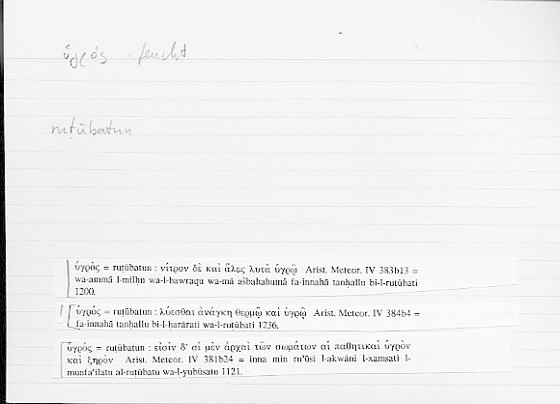 ὑγρός - feucht
ruṭūbatun
ὑγρός = ruṭūbatun : νίτρον δὲ καὶ ἅλες λυτὰ ὑγρῷ Arist. Meteor. IV 383b13 =
wa-ammā l-milḥu wa-l-bawraqu wa-mā ašbahahumā fa-innahā tanḥallu bi-l-ruṭūbati
1200.
ὑγρός = ruṭūbatun : λύεσθαι ἀνάγκη θερμῷ καὶ ὑγρῷ Arist. Meteor. IV 384b4 =
fa-innahā tanḥallu bi-l-ḥarārati wa-l-ruṭūbati 1236.
ὑγρός = ruṭūbatun : εἰσὶν δ' αἱ μὲν ἀρχαὶ τῶν σωμάτων αἱ παθητικαὶ ὑγρὸν
καὶ ξηρόν Arist. Meteor. IV 381b24 = inna min ru'ūsi l-akwāni l-xamsati l-
munfa'ilatu al-ruṭūbatu wa-l-yubūsatu 1121.